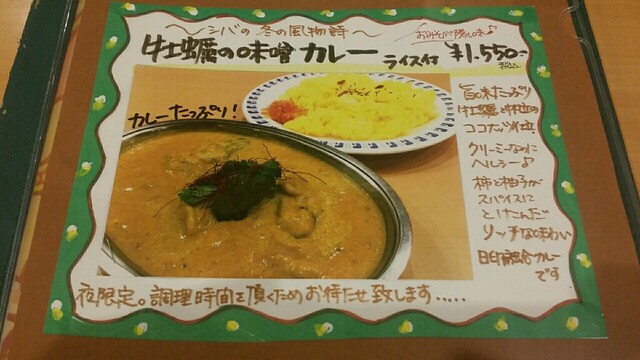 ～シバの冬の風物詩～
おみそが隠し味♪
牡蠣の味噌カレー ライス付 ¥1,550-
カレーたっぷり！
旨味たっぷり
牡蠣と
ココナッツ
クリーミーなのに
ヘルシー♪
柿と柚子が
スパイスに
とけこんだ
リッチな味わい
日印融合カレー
です
夜限定。調理時間を頂くためお待たせ致します.....